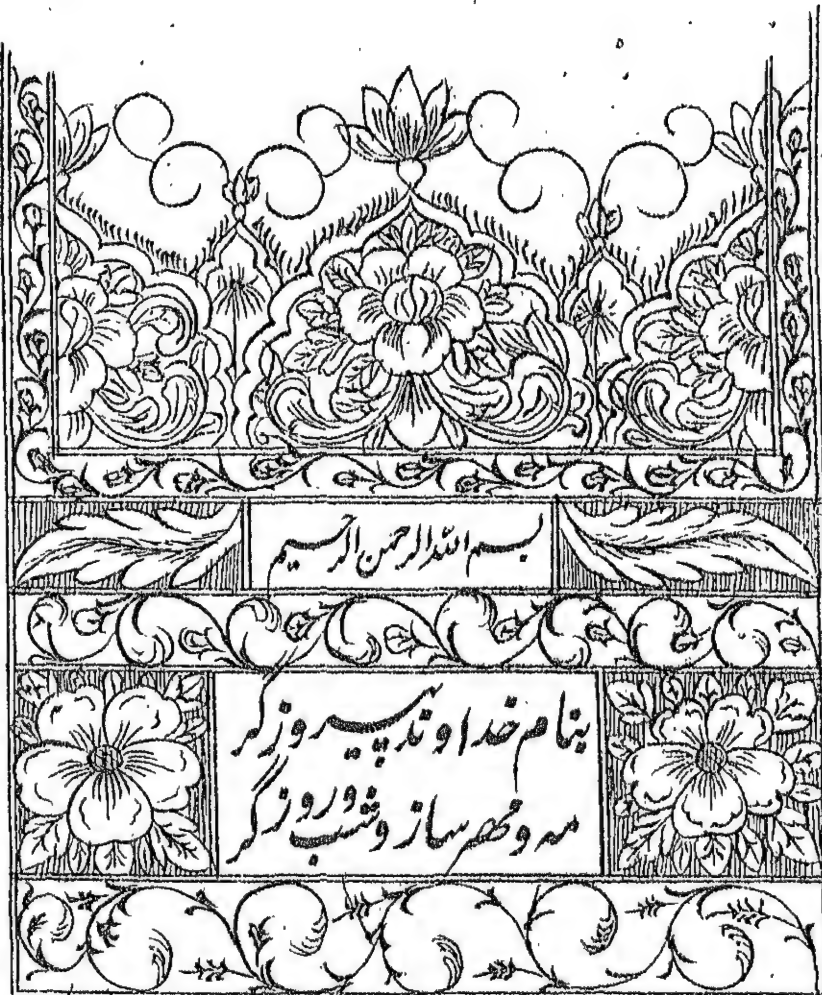 بسم الله الرحمن الرحیم
بنام خداوند پیروزگر
مه و مهر ساز و شب و روز گر